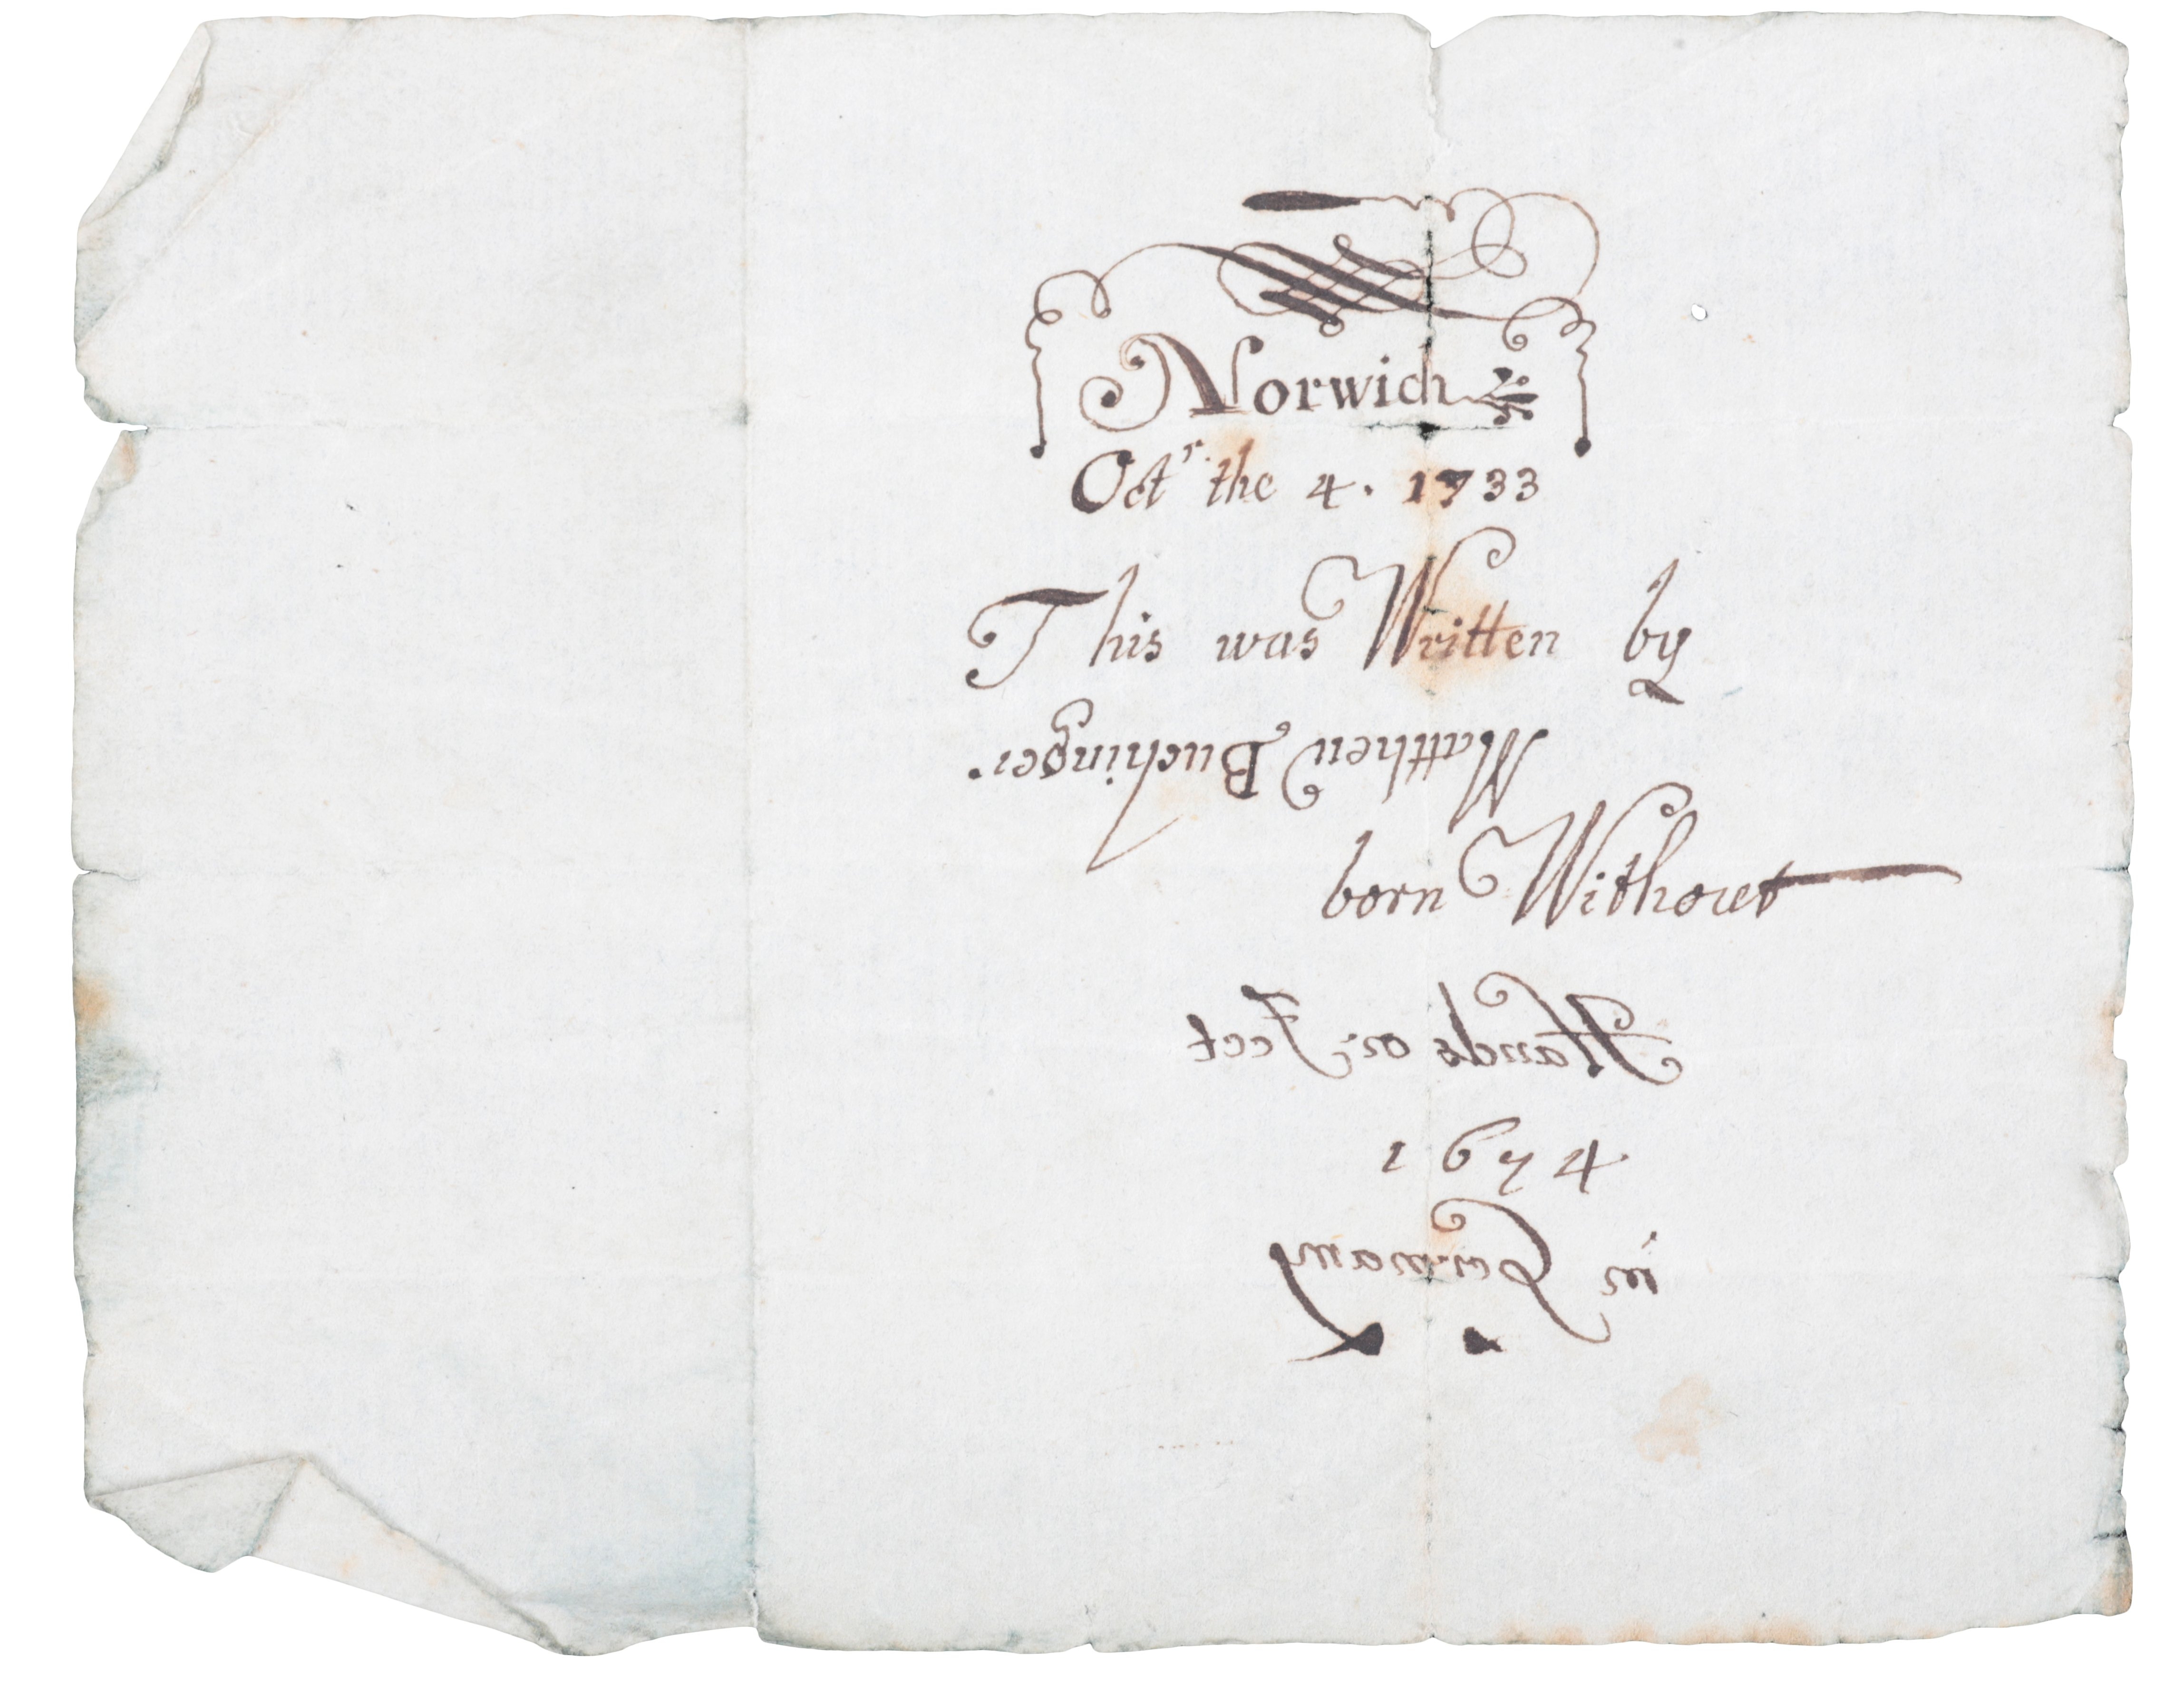 Norwich
Octr. the 4. 1733
This was Written by
Matthew Buchinger.
born Without
Hands or Feet
1674
in Germany